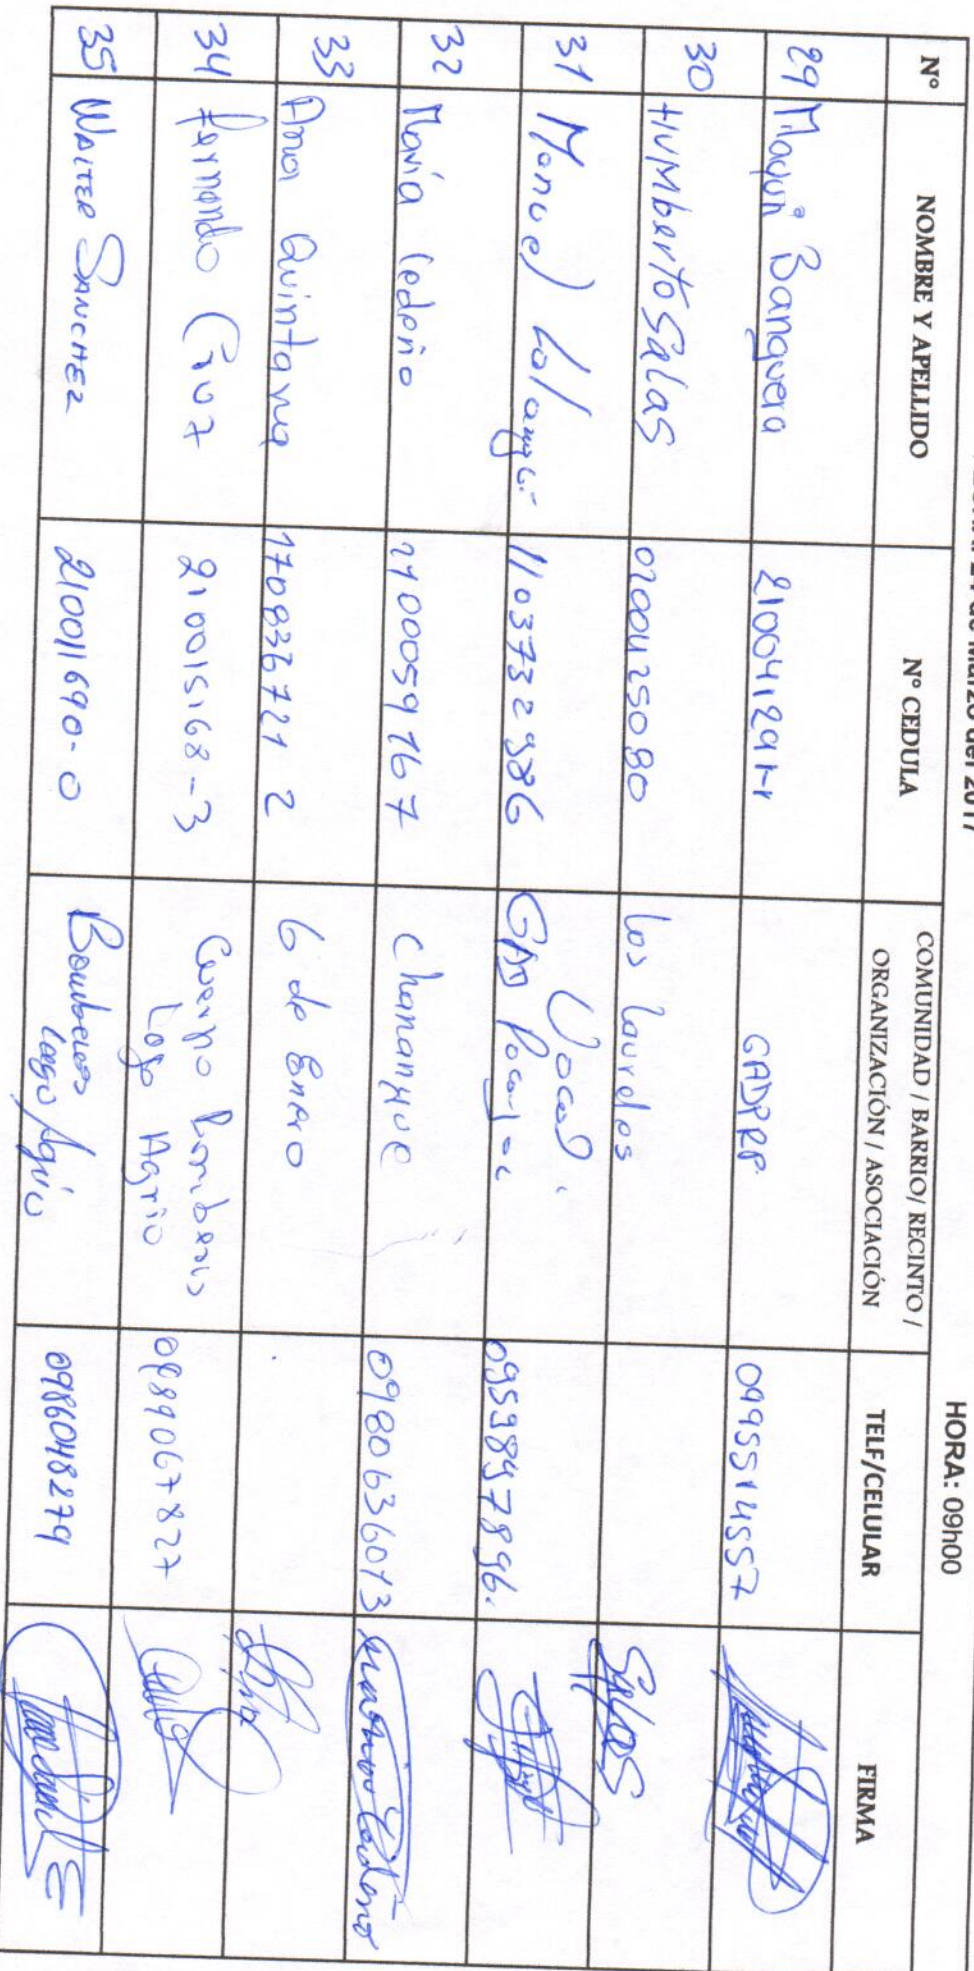 de Marzo del 2017
HORA: 09h00
N° NOMBRE Y APELLIDO N° CEDULA COMUNIDAD / BARRIO/ RECINTO / ORGANIZACIÓN / ASOCIACIÓN TELF/CELULAR FIRMA
29 Banguera GADPRP 0995514557
30 HUMberto Salas 0200425080 los laureles Salas
31 Manuel 1103732986 Vocal GAD 0959897896.
32 María Cedeño 2100059167 Chanangue 0980636013
33 Ana Quintana 170836721 2 6 de Enero
34 Fernando Cruz 210015168-3 Cuerpo Bomberos Lago Agrio 0989067827
35 WALTER SANCHEZ 210011690-0 Bomberos Lago Agrio 0986048279